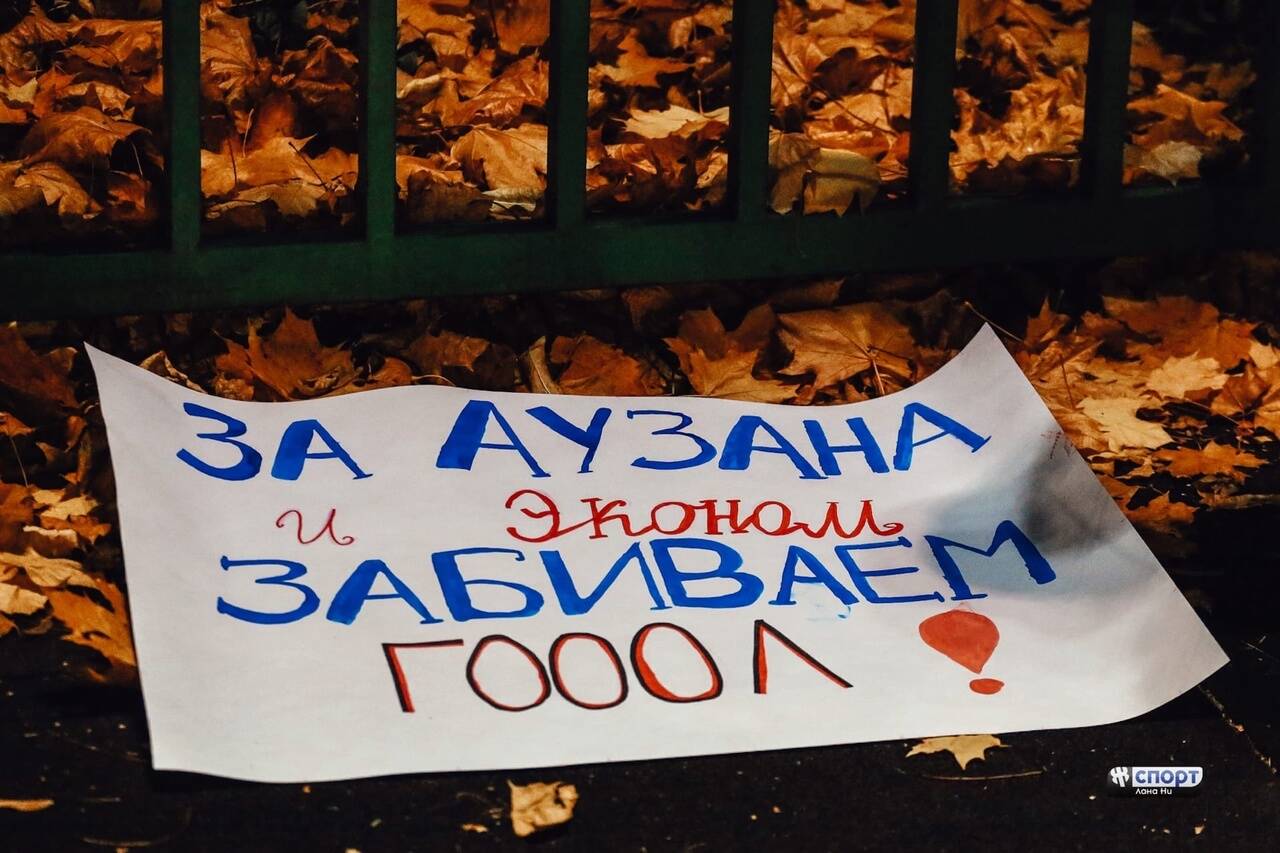 ЗА АУЗАНА
и Эконом
ЗАБИВАЕМ
ГОООЛ!
СПОРТ
Лана Ни